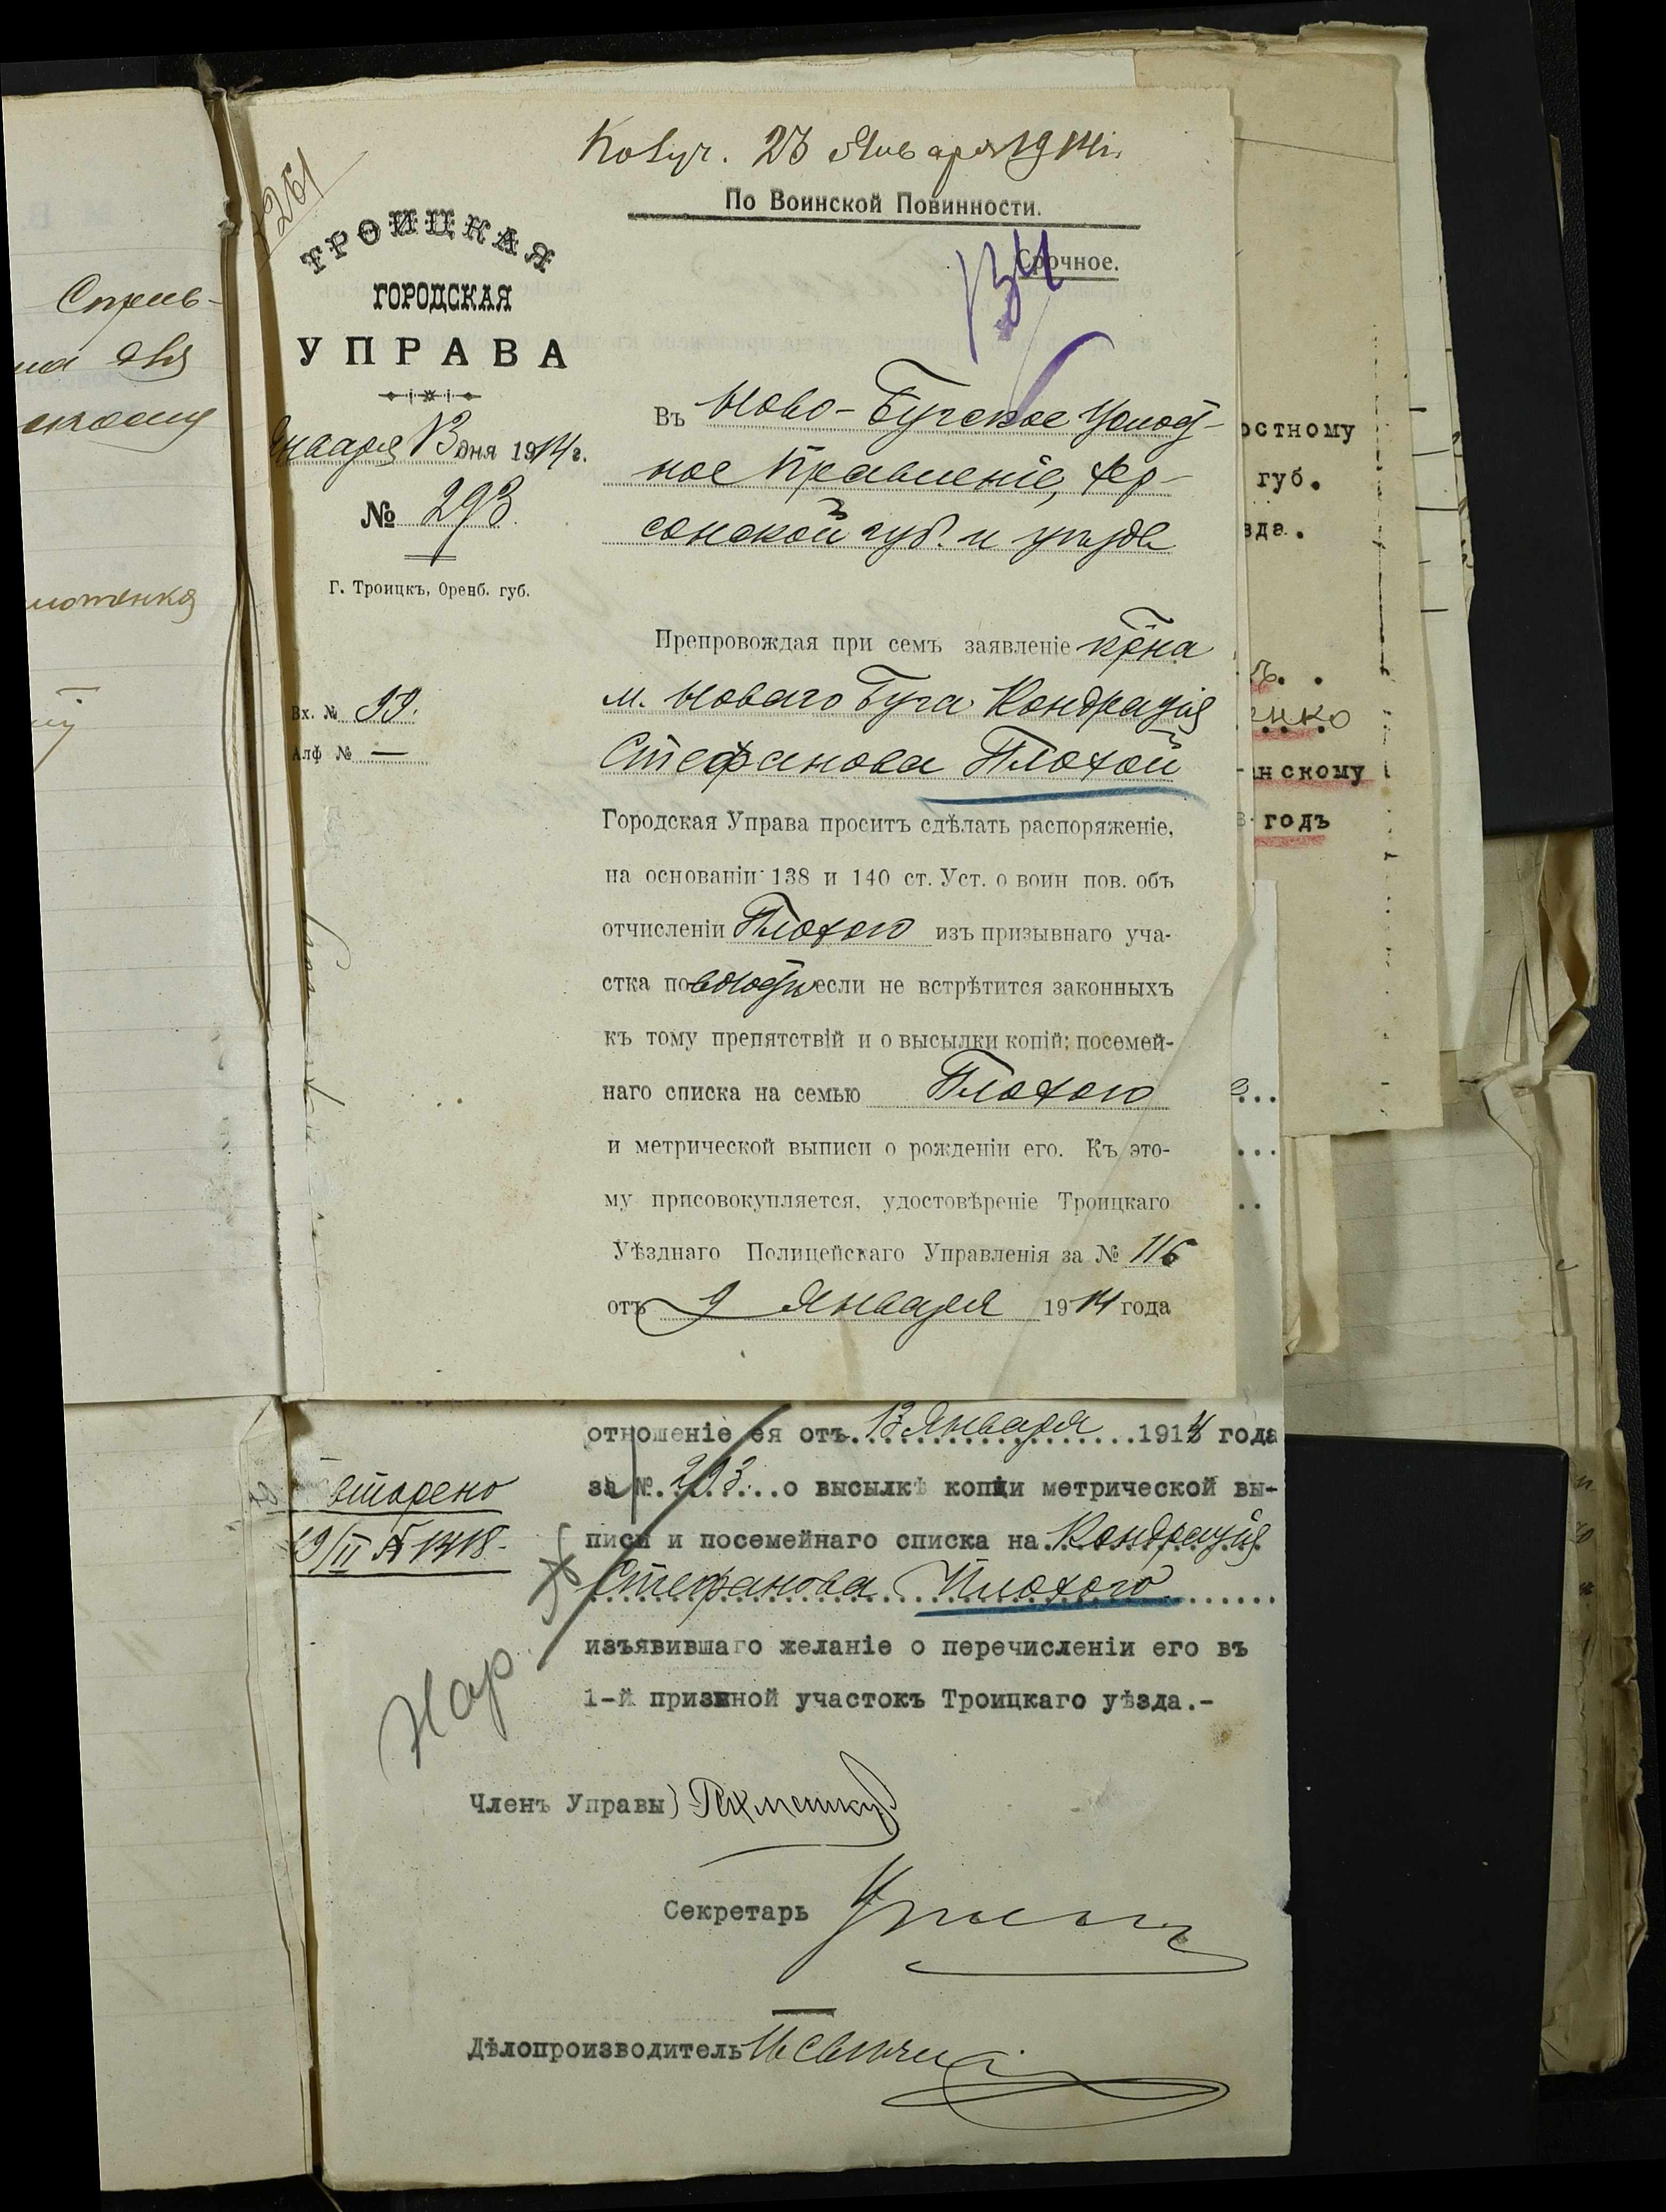 1261
Получ. 23 Января 1914 г.
По Воинской Повинности.
Срочное.
134
ТРОИЦКАЯ
ГОРОДСКАЯ
УПРАВА
Января 13 дня 1914 г.
№ 293
Г. Троицкъ, Оренб. губ.
Вх. № 99.
Алф № —
Въ Ново-Бугское Волост-
ное Правленіе, Хер-
сонской губ. и уѣзда
Препровождая при семъ заявленіе кр-на
м. Новаго Буга Кондратія
Стефанова Плохой
Городская Управа проситъ сдѣлать распоряженіе,
на основаніи 138 и 140 ст. Уст. о воин пов. объ
отчисленіи Плохого изъ призывнаго уча-
стка по волости если не встрѣтится законныхъ
къ тому препятствій и о высылки копій: посемей-
наго списка на семью Плохого
и метрической выписи о рожденіи его. Къ это-
му присовокупляется, удостовѣреніе Троицкаго
Уѣзднаго Полицейскаго Управленія за № 116
отъ 9 Января 1914 года
отношеніе ея отъ 13 Января 1914 года
за № 293 о высылкѣ копіи метрической вы-
писи и посемейнаго списка на Кондратія
Стефанова Плохого
изъявившаго желаніе о перечисленіи его въ
1-й призывной участокъ Троицкаго уѣзда.-
19/II № 1418
Нар.
Членъ Управы
Секретарь
Дѣлопроизводитель
остному
губ.
зда.
енко
анскому
годъ